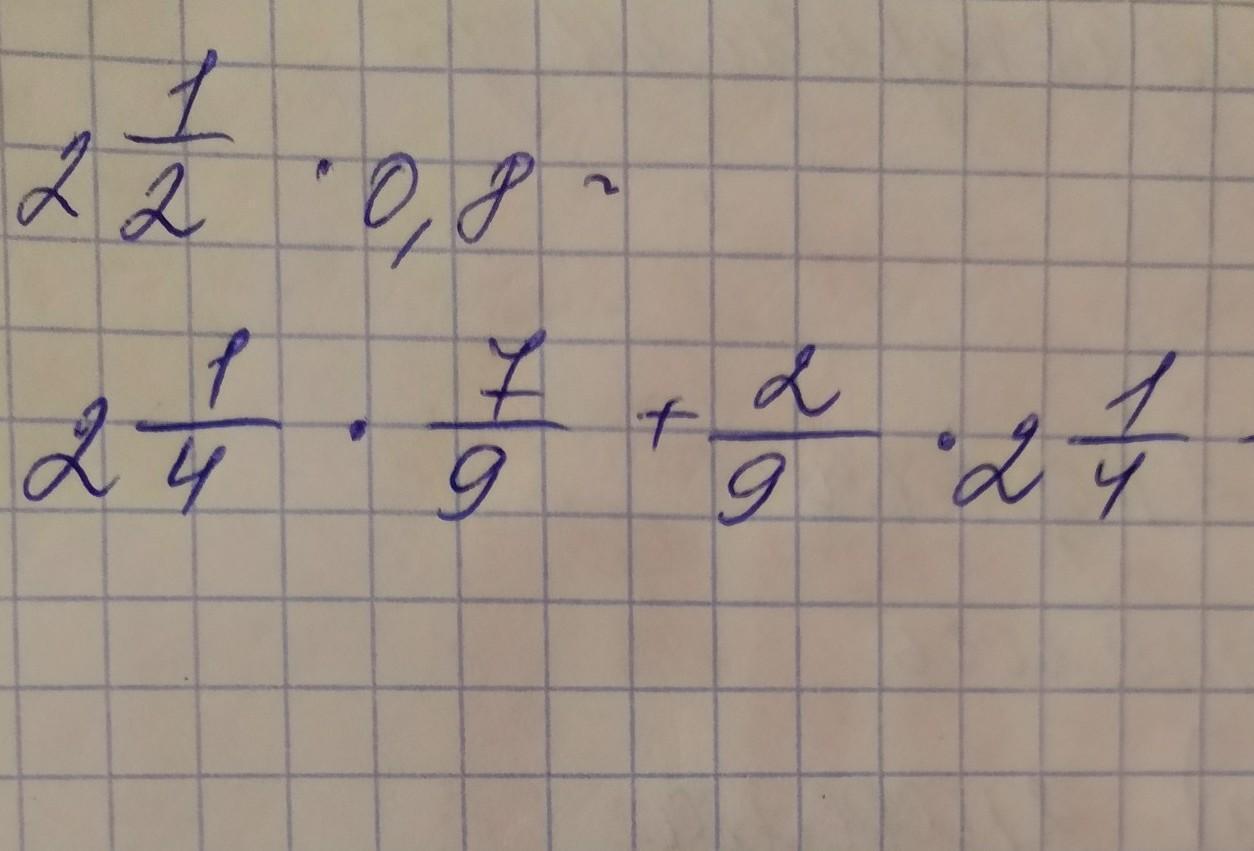 2 1/2 · 0,8 =
2 1/4 · 7/9 + 2/9 · 2 1/4 -